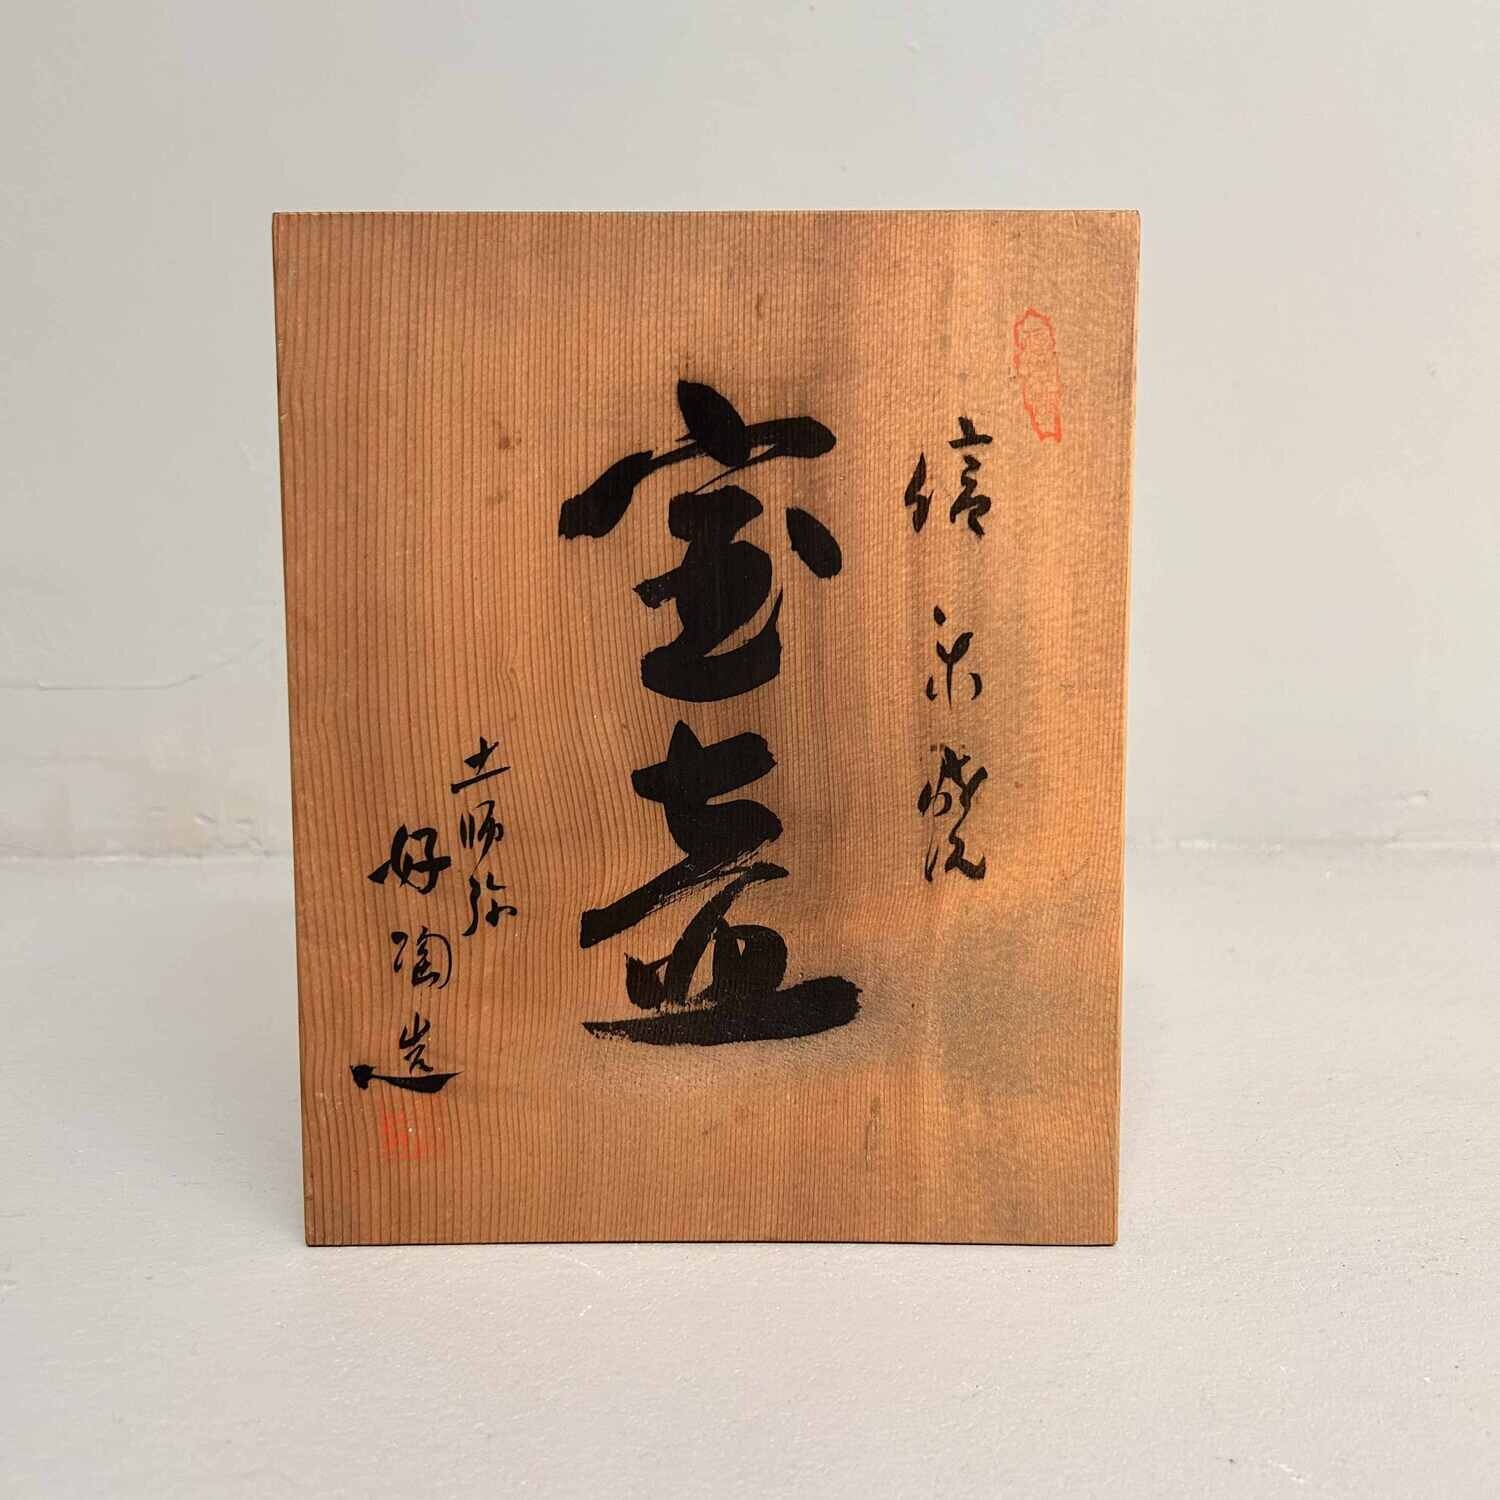 信楽焼
宝壺
土師弥
好陶造